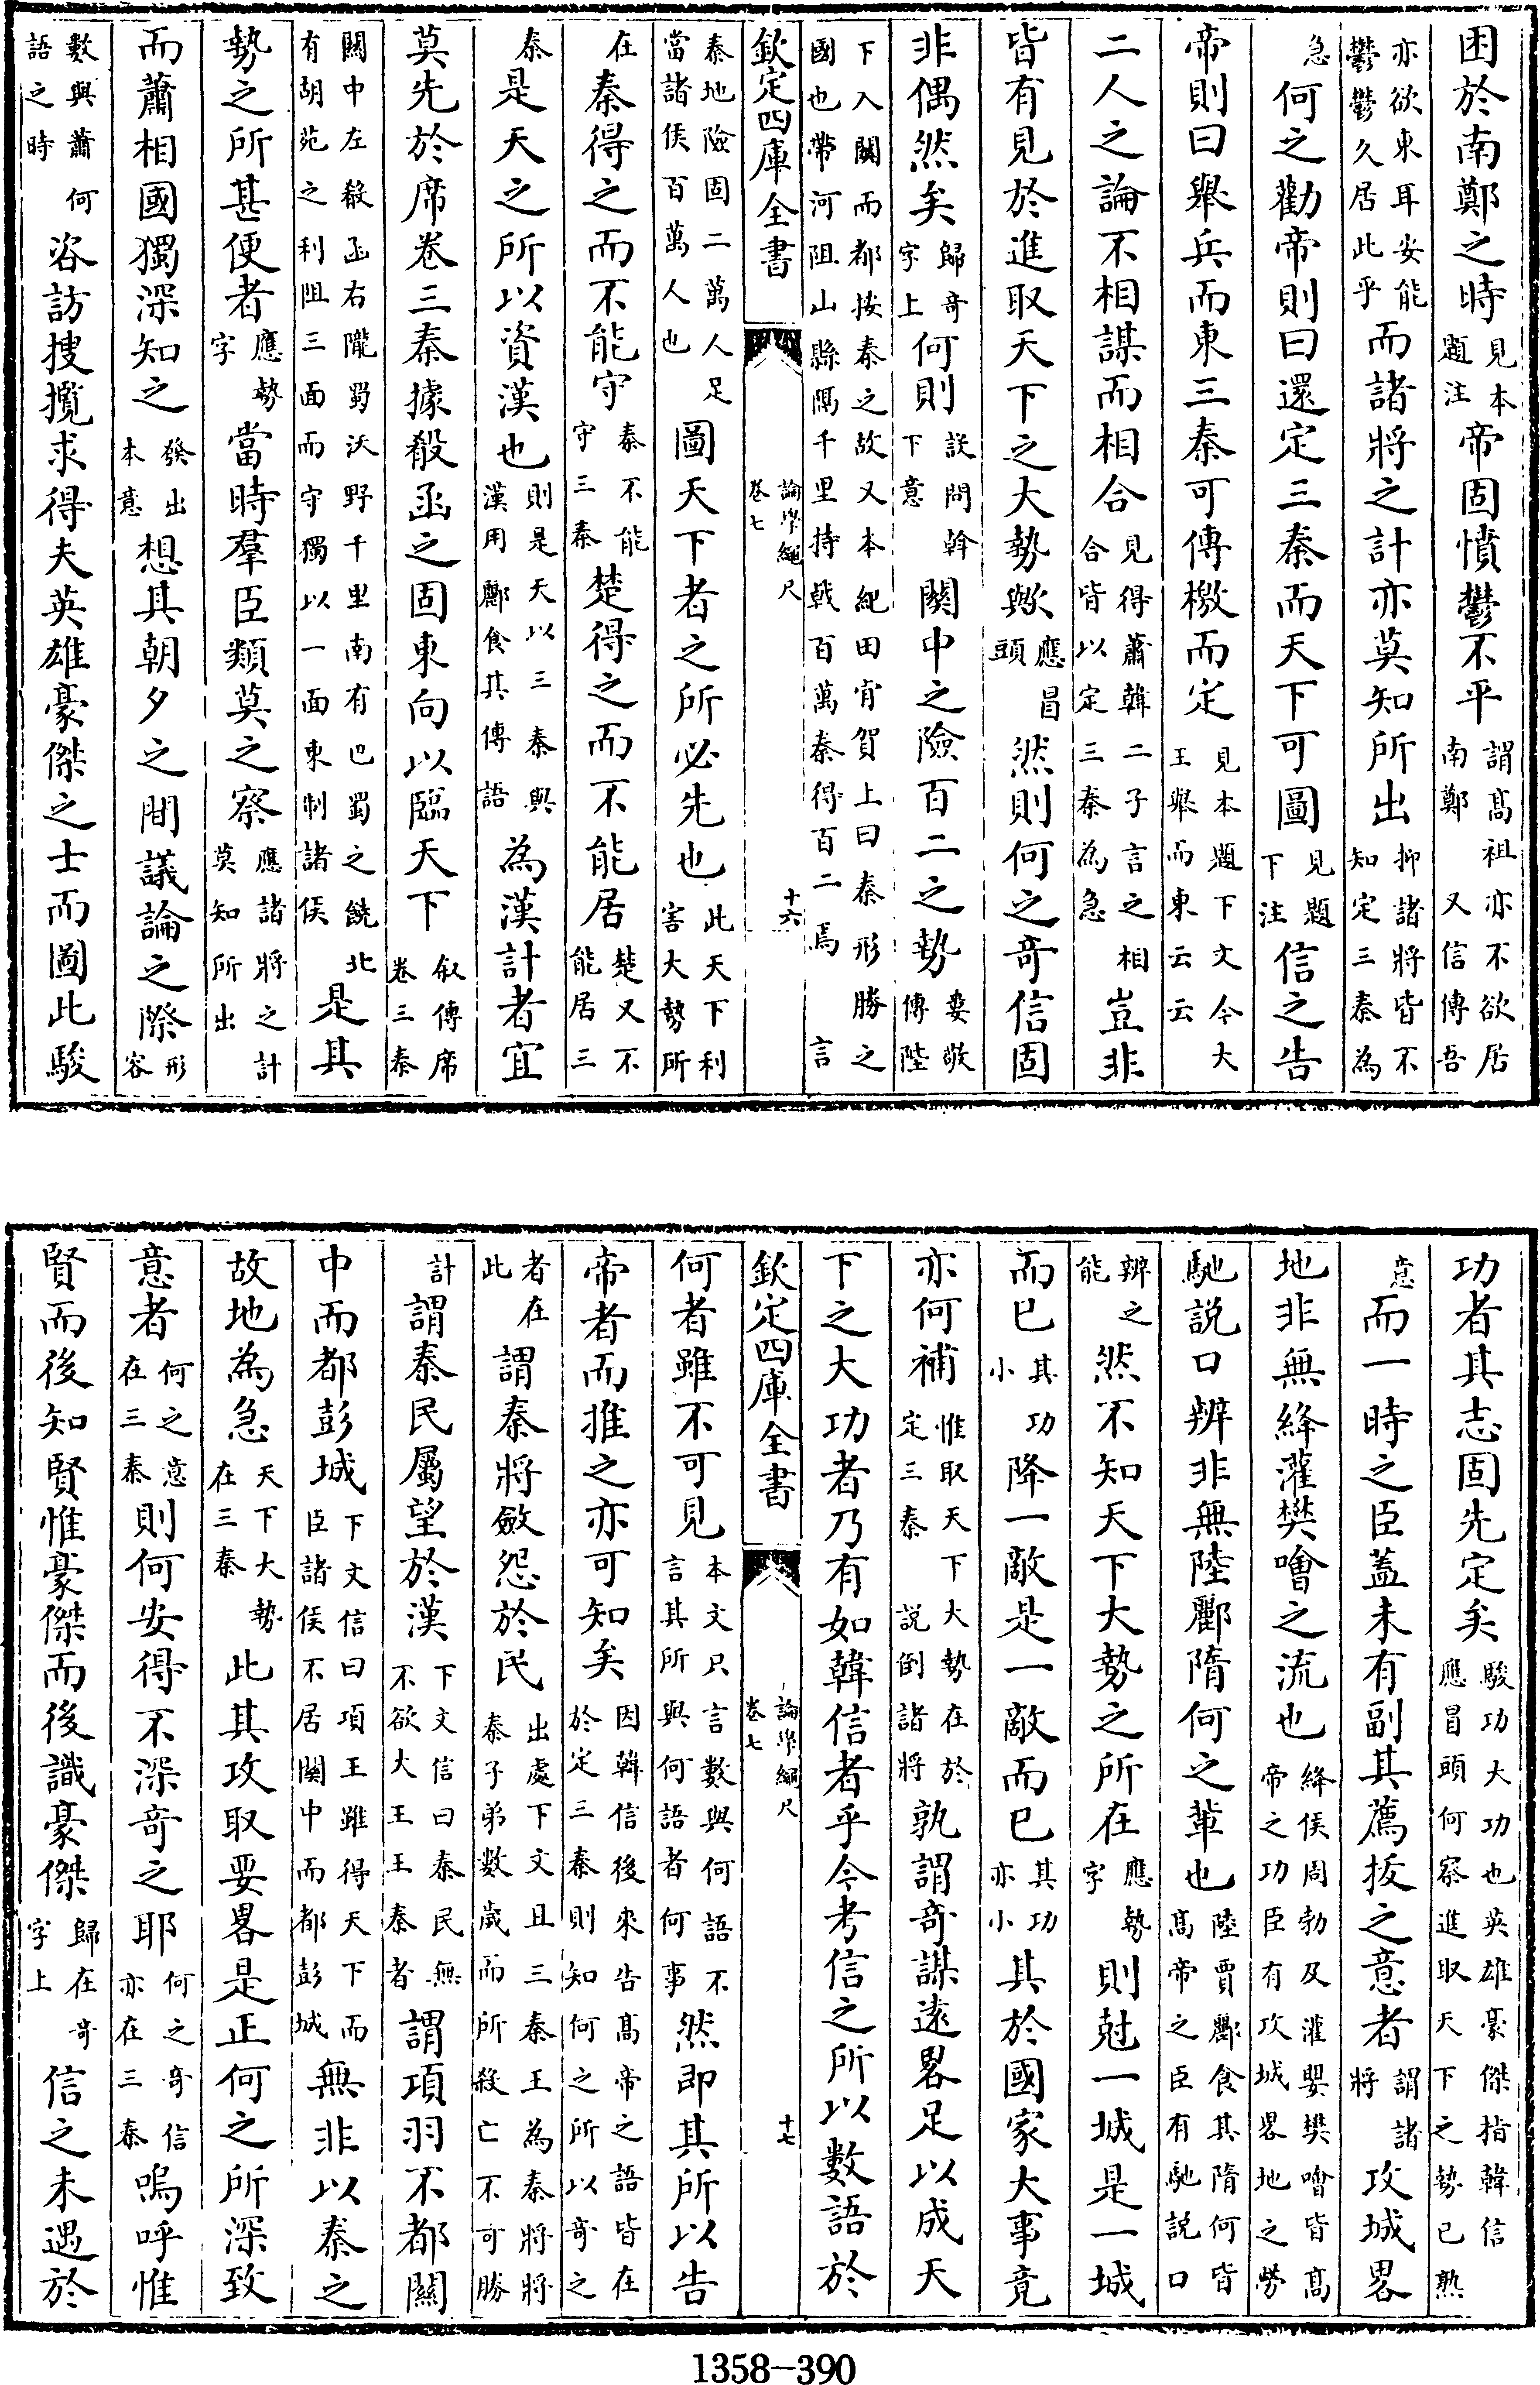 困於南鄭之時見本題注帝固憤鬱不平謂髙祖亦不欲居南鄭又信傳吾
亦欲東耳安能鬱鬱久居此乎而諸將之計亦莫知所出抑諸將皆不知定三秦為
急何之勸帝則曰還定三秦而天下可圖見題下注信之告
帝則曰舉兵而東三秦可傳檄而定見本題下文今大王舉而東云云
二人之論不相謀而相合見得蕭韓二子言之相合皆以定三秦為急豈非
皆有見於進取天下之大勢歟應冒頭然則何之竒信固
非偶然矣歸竒字上何則設問斡下意關中之險百二之勢婁敬傳陛
下入關而都按秦之故又本紀田肯賀上曰秦形勝之國也帶河阻山縣隅千里持㦸百萬秦得百二焉言
欽定四庫全書
論學繩尺
卷七
十六
秦地險固二萬人足當諸侯百萬人也圖天下者之所必先也此天下利害大勢所
在秦得之而不能守秦不能守三秦楚得之而不能居楚又不能居三
秦是天之所以資漢也則是天以三秦與漢用酈食其傳語為漢計者宜
莫先於席卷三秦據殽函之固東向以臨天下叙傳席卷三秦
關中左殽函右隴蜀沃野千里南有巴蜀之饒北有胡苑之利阻三面而守獨以一面東制諸侯是其
勢之所甚便者應勢字當時羣臣類莫之察應諸將之計莫知所出
而蕭相國獨深知之發出本意想其朝夕之間議論之際形容
數與蕭何語之時咨訪搜攬求得夫英雄豪傑之士而圖此駿
功者其志固先定矣駿功大功也英雄豪傑指韓信應冒頭何察進取天下之勢已熟
意而一時之臣蓋未有副其薦拔之意者謂諸將攻城畧
地非無絳灌樊噲之流也絳侯周勃及灌嬰樊噲皆髙帝之功臣有攻城畧地之勞
馳説口辨非無陸酈隋何之輩也陸賈酈食其隋何皆髙帝之臣有馳説口
辨之能然不知天下大勢之所在應勢字則尅一城是一城
而已其功小降一敵是一敵而已其功亦小其於國家大事竟
亦何補惟取天下大勢在於定三秦説倒諸將孰謂竒謀逺畧足以成天
下之大功者乃有如韓信者乎今考信之所以數語於
欽定四庫全書
論學繩尺
卷七
十七
何者雖不可見本文只言數與何語不言其所與何語者何事然即其所以告
帝者而推之亦可知矣因韓信後來告髙帝之語皆在於定三秦則知何之所以竒之
者在此謂秦將斂怨於民出處下文且三秦王為秦將將秦子弟數嵗而所殺亡不可勝
計謂秦民屬望於漢下文信曰秦民無不欲大王王秦者謂項羽不都關
中而都彭城下文信曰項王雖得天下而臣諸侯不居關中而都彭城無非以秦之
故地為急天下大勢在三秦此其攻取要畧是正何之所深致
意者何之意在三秦則何安得不深竒之耶何之竒信亦在三秦嗚呼惟
賢而後知賢惟豪傑而後識豪傑歸在竒字上信之未遇於
1358-390